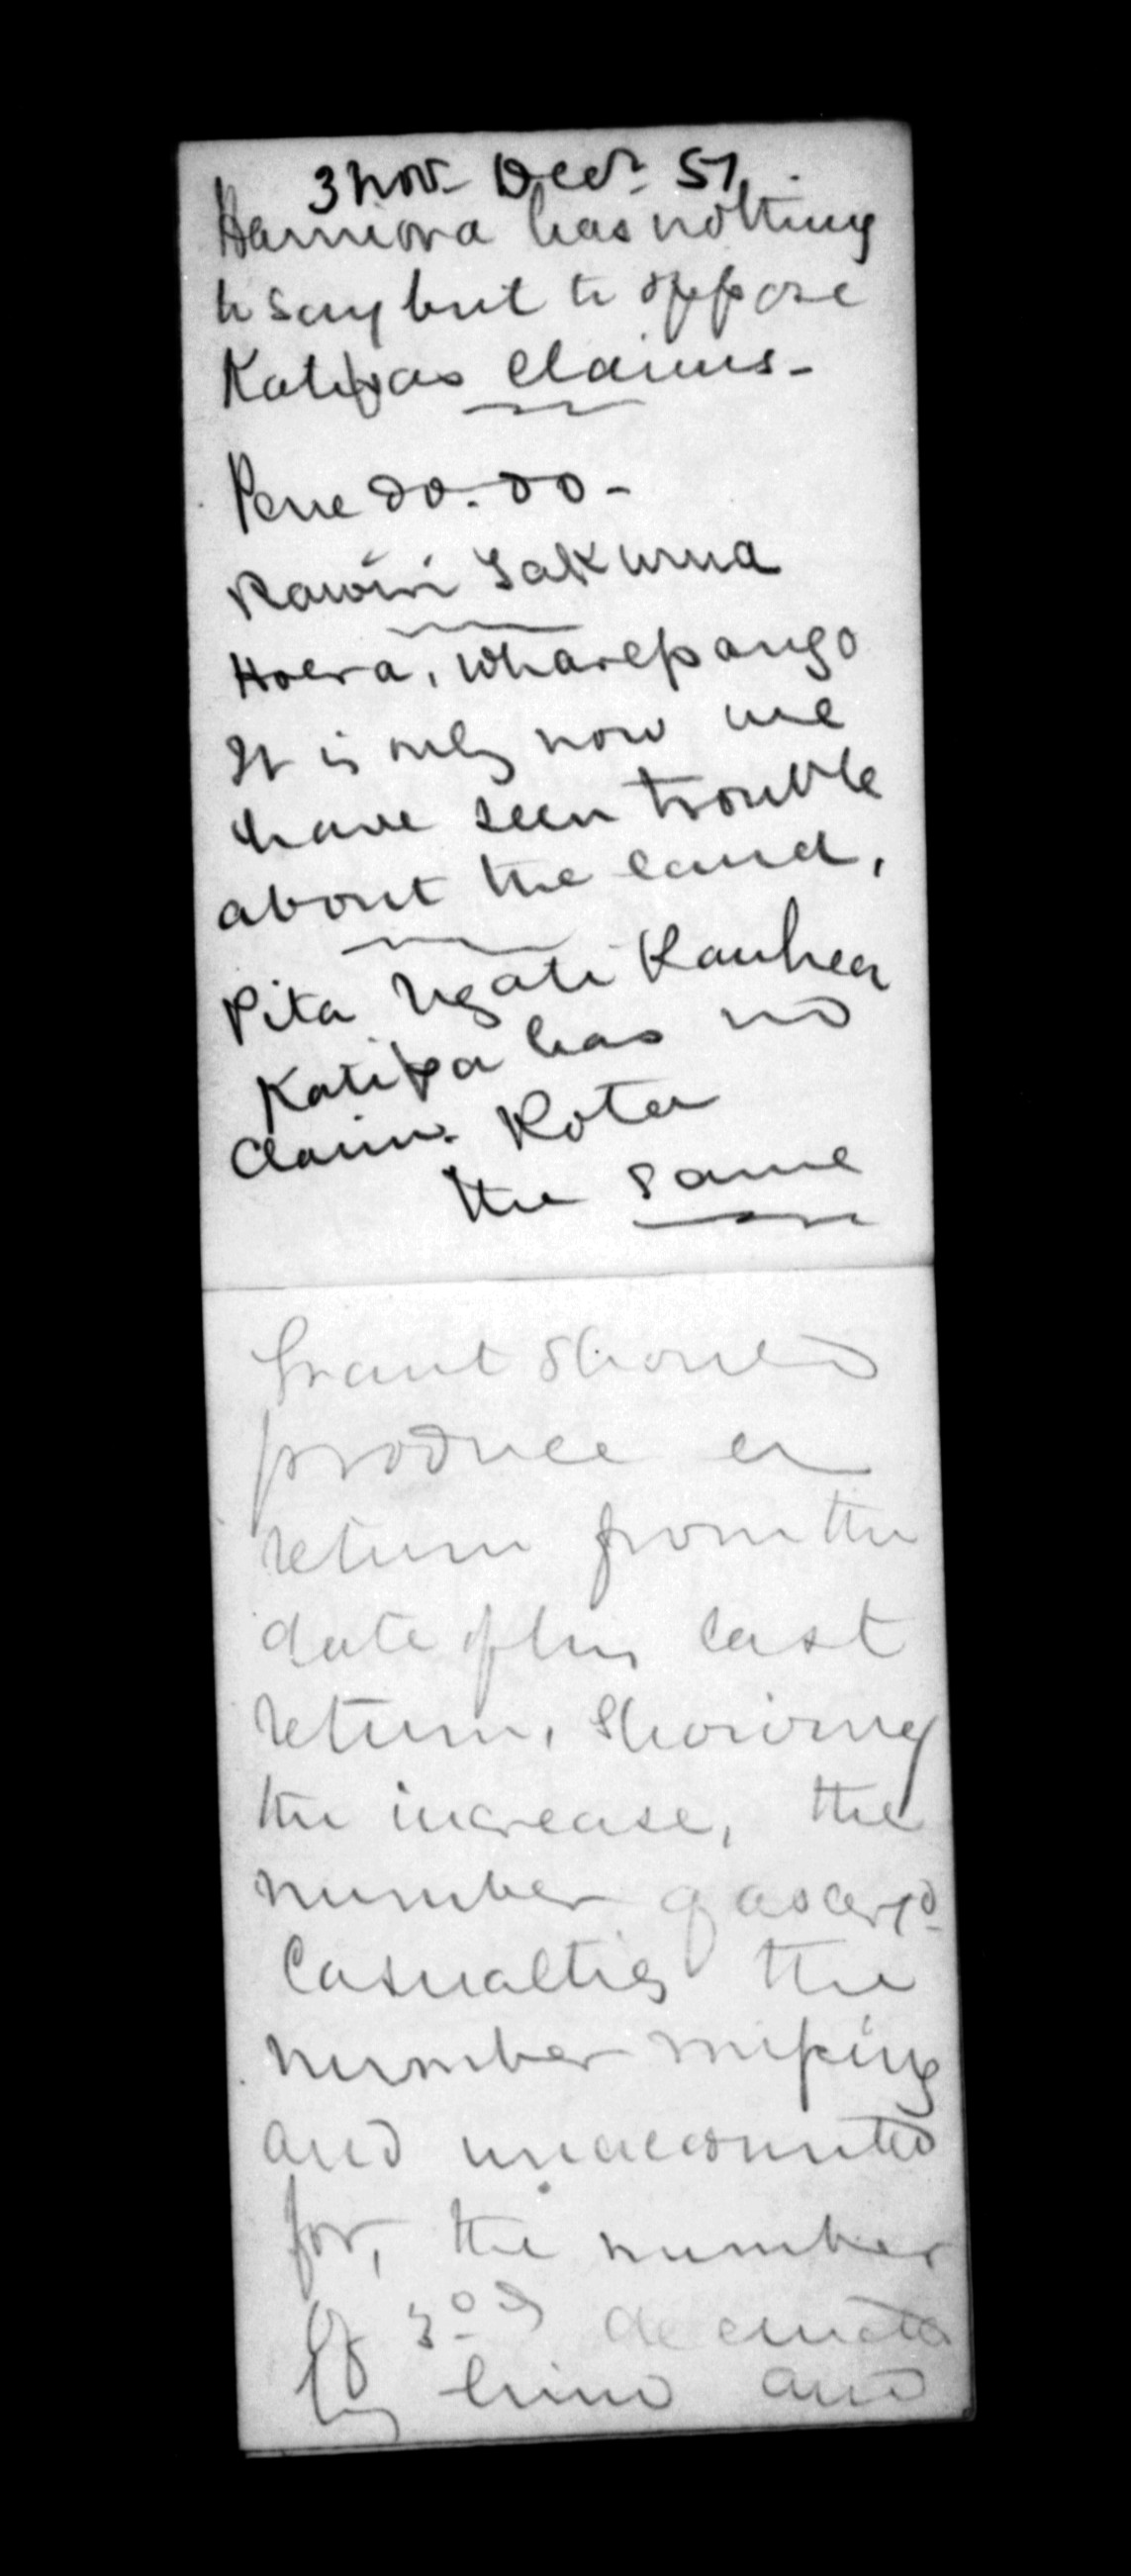 3 Nov - Decr 51.
Hamiora has nothing
to say but to oppose
Katipas claims -
Pene do. do -
Rawiri Takurua
Hoera, Wharepango
It is only now we
have seen trouble
about the land,
Pita Ngati Kauhea
Katipa has no
claim. Rota
the same
Grant should
produce a
return from the
date of his last
return, showing
the increase, the
number of ascertd
Casualties the
number missing
and unaccounted
for, the number
of
by him and